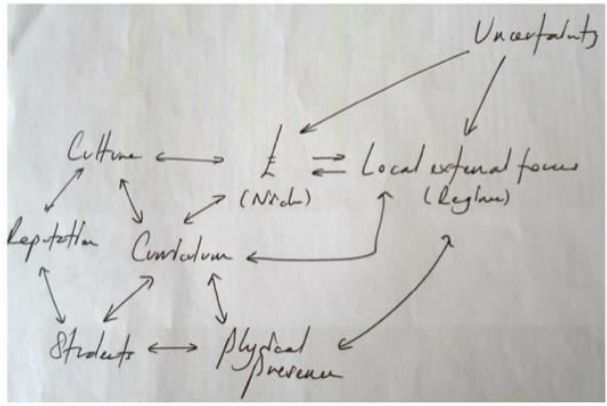 Uncertainty
Culture
£
Local external forces
(Niche)
(Regime)
Reputation
Curriculum
Students
Physical
presence